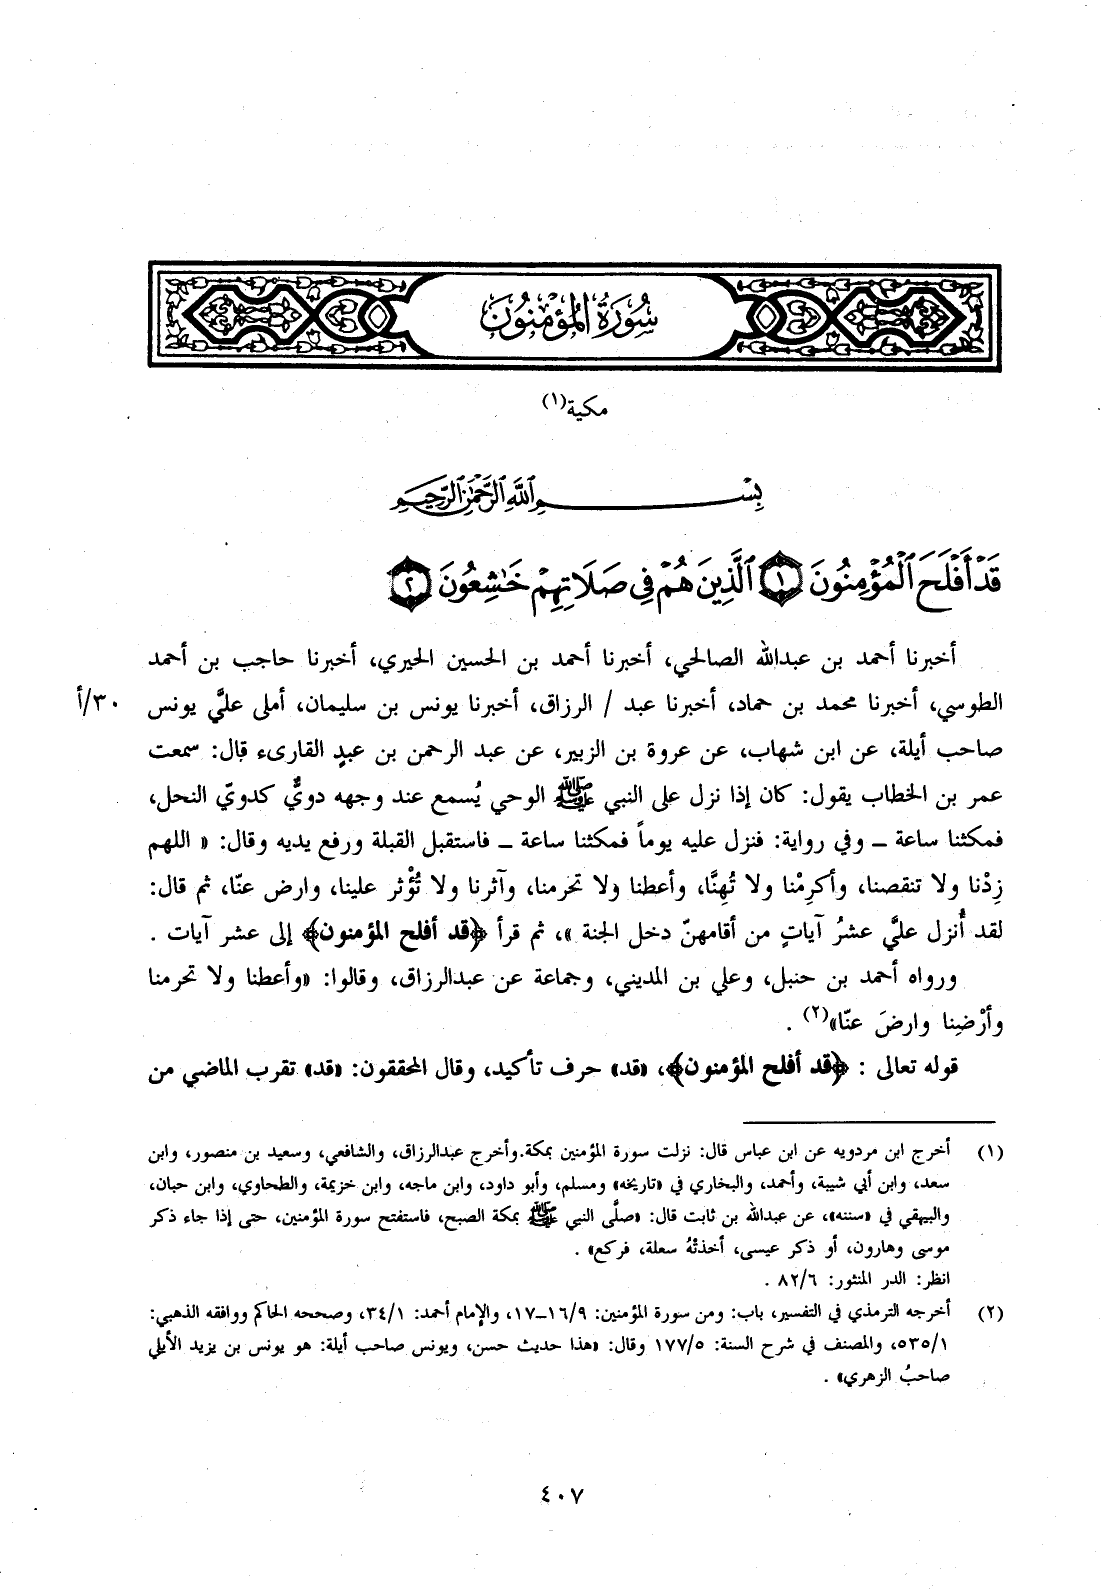 سُورَةُ المُؤْمِنُونَ
مكية(١)
بِسْمِ اللَّهِ الرَّحْمَٰنِ الرَّحِيمِ
قَدْ أَفْلَحَ ٱلْمُؤْمِنُونَ ١ ٱلَّذِينَ هُمْ فِى صَلَاتِهِمْ خَٰشِعُونَ ٢
أخبرنا أحمد بن عبدالله الصالحي، أخبرنا أحمد بن الحسين الحيري، أخبرنا حاجب بن أحمد
الطوسي، أخبرنا محمد بن حماد، أخبرنا عبد / الرزاق، أخبرنا يونس بن سليمان، أملى عليَّ يونس ٣٠/أ
صاحب أيلة، عن ابن شهاب، عن عروة بن الزبير، عن عبد الرحمن بن عبدٍ القارىء قال: سمعت
عمر بن الخطاب يقول: كان إذا نزل على النبي ﷺ الوحي يُسمع عند وجهه دويٌّ كدويّ النحل،
فمكثنا ساعة ــ وفي رواية: فنزل عليه يوماً فمكثنا ساعة ــ فاستقبل القبلة ورفع يديه وقال: « اللهم
زِدْنا ولا تنقصنا، وأكرِمْنا ولا تُهِنَّا، وأعطنا ولا تحرمنا، وآثرنا ولا تُؤْثر علينا، وارض عنّا، ثم قال:
لقد أُنزل عليَّ عشرُ آياتٍ من أقامهنّ دخل الجنة »، ثم قرأ ﴿قد أفلح المؤمنون﴾ إلى عشر آيات .
ورواه أحمد بن حنبل، وعلي بن المديني، وجماعة عن عبدالرزاق، وقالوا: «وأعطنا ولا تحرمنا
وأرْضِنا وارضَ عنّا»(٢) .
قوله تعالى : ﴿قد أفلح المؤمنون﴾، «قد» حرف تأكيد، وقال المحققون: «قد» تقرب الماضي من
(١) أخرج ابن مردويه عن ابن عباس قال: نزلت سورة المؤمنين بمكة.وأخرج عبدالرزاق، والشافعي، وسعيد بن منصور، وابن
سعد، وابن أبي شيبة، وأحمد، والبخاري في «تاريخه» ومسلم، وأبو داود، وابن ماجه، وابن خزيمة، والطحاوي، وابن حبان،
والبيهقي في «سننه»، عن عبدالله بن ثابت قال: «صلَّى النبي ﷺ بمكة الصبح، فاستفتح سورة المؤمنين، حتى إذا جاء ذكر
موسى وهارون، أو ذكر عيسى، أخذتْهُ سعلة، فركع» .
انظر: الدر المنثور: ٨٢/٦ .
(٢) أخرجه الترمذي في التفسير، باب: ومن سورة المؤمنين: ١٦/٩ــ١٧، والإمام أحمد: ٣٤/١، وصححه الحاكم ووافقه الذهبي:
٥٣٥/١، والمصنف في شرح السنة: ١٧٧/٥ وقال: «هذا حديث حسن، ويونس صاحب أيلة: هو يونس بن يزيد الأيلي
صاحبُ الزهري» .
٤٠٧